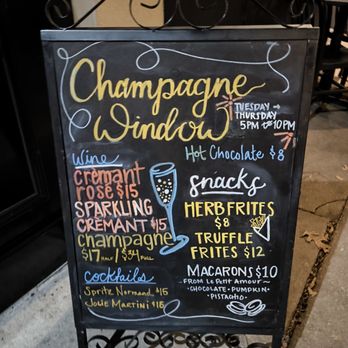 Champagne
Window
TUESDAY →
THURSDAY
5PM to 10PM
Wine
crémant
rosé $15
SPARKLING
CRÉMANT $15
champagne
$17 HALF / $34 FULL
cocktails
Spritz Normand $15
Jolie Martini $15
Hot Chocolate $8
snacks
HERB FRITES
$8
TRUFFLE
FRITES $12
MACARONS $10
~ FROM LE PETIT AMOUR ~
• CHOCOLATE • PUMPKIN •
PISTACHIO •